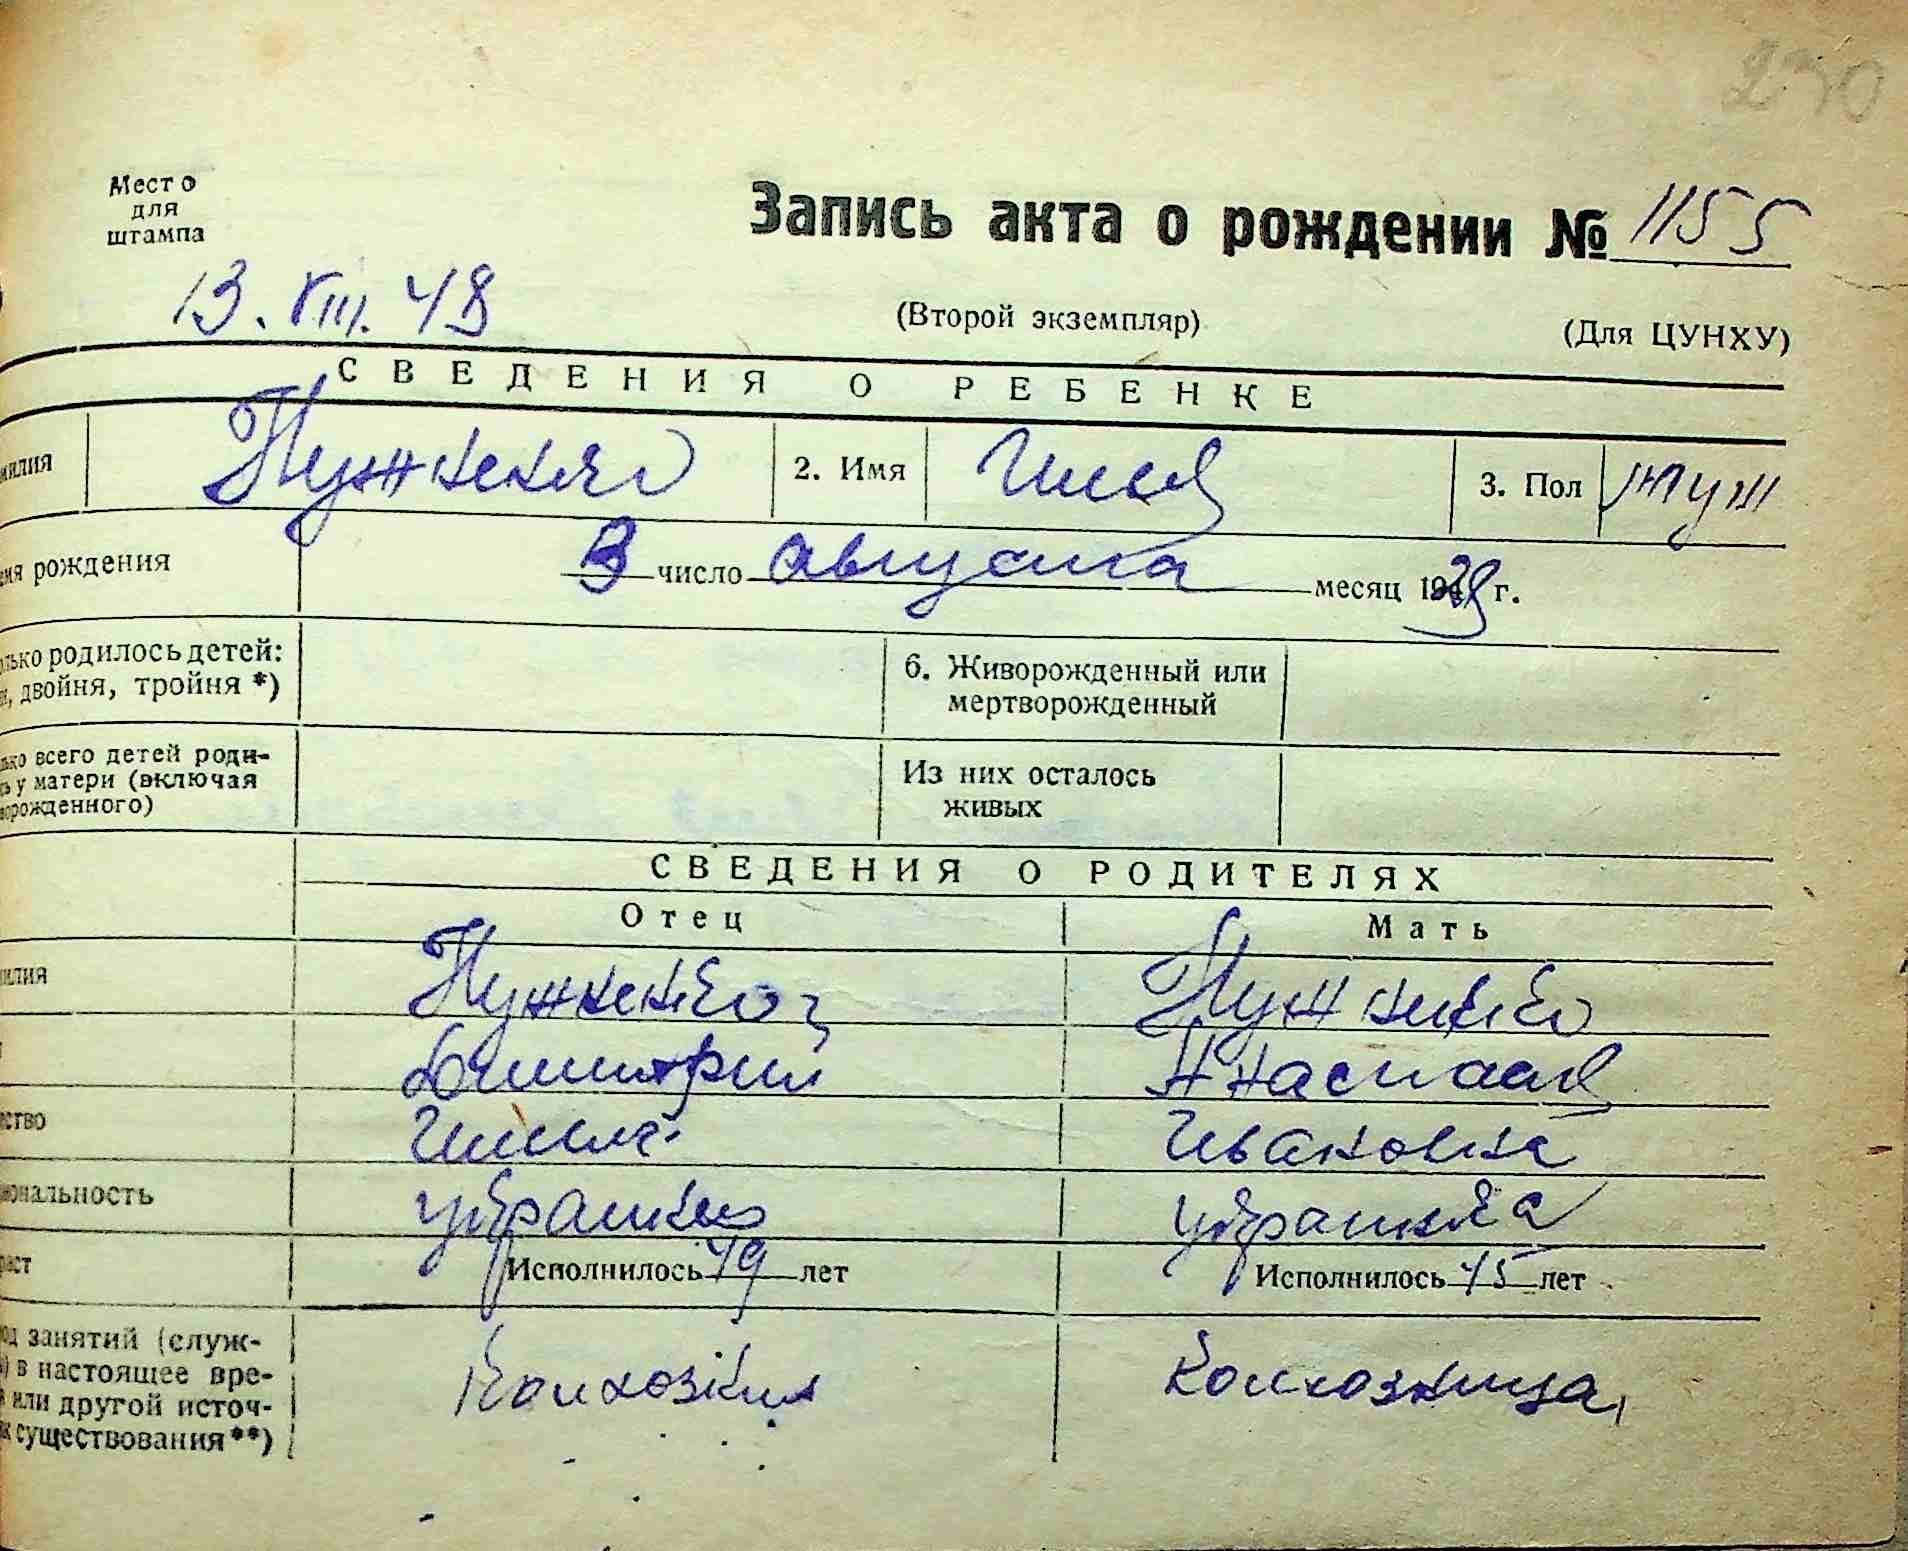 230
Место
для
штампа
Запись акта о рождении № 1155
13. VIII. 48
(Второй экземпляр)
(Для ЦУНХУ)
СВЕДЕНИЯ О РЕБЕНКЕ
милия 2. Имя Илья 3. Пол муж
емя рождения 3 число августа месяц г.
олько родилось детей:
, двойня, тройня *)
6. Живорожденный или
мертворожденный
лько всего детей роди-
сь у матери (включая
ворожденного)
Из них осталось
живых
СВЕДЕНИЯ О РОДИТЕЛЯХ
Отец Мать
милия
Дмитрий Анастасия
ество Ильич Ивановна
иональность украинец украинка
раст Исполнилось 49 лет Исполнилось 45 лет
од занятий (служ-
) в настоящее вре-
или другой источ-
к существования**)
Колхозник Колхозница